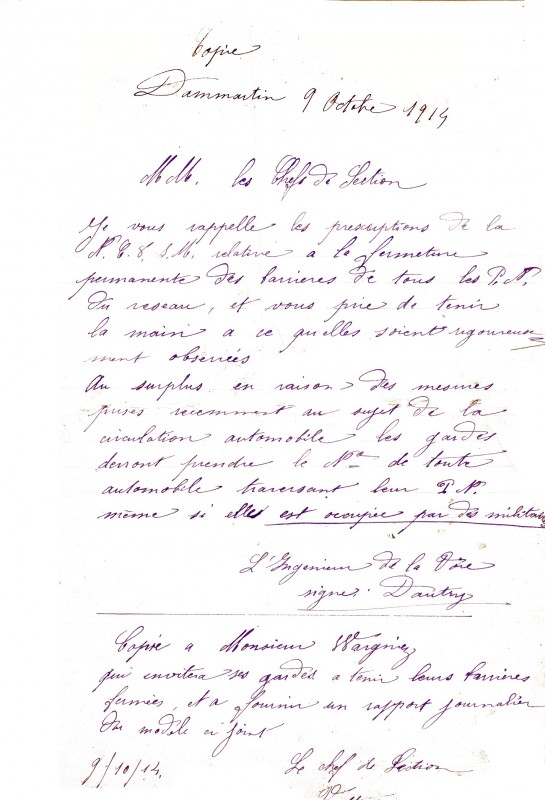 Copie
Dammartin 9 Octobre 1914
M.M. les Chefs de Section
Je vous rappelle les prescriptions de la
N.C.8.S.M. relative a la fermeture
permanente des barrieres de tous les P.N.
du reseau, et vous prie de tenir
la main a ce qu'elles soient rigoureuse
ment observées
Au surplus en raison des mesures
prises recemment au sujet de la
circulation automobile les gardes
devront prendre le No de toute
automobile traversant leur P.N.
même si elles est occupée par des militaires
L'Ingenieur de la Voie
signé. Dautry
Copie a Monsieur Wargniez
qui invitera ses gardes a tenir leurs barrieres
fermées, et a fournir un rapport journalier
du modèle ci joint
9/10/14. Le chef de Section